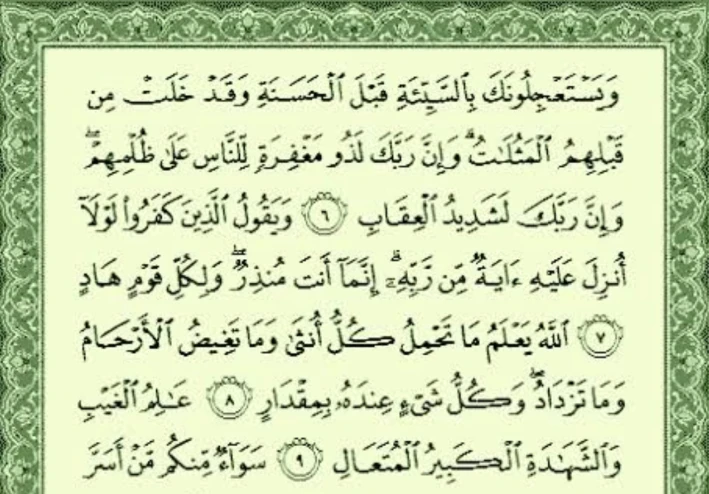 وَيَسْتَعْجِلُونَكَ بِالسَّيِّئَةِ قَبْلَ الْحَسَنَةِ وَقَدْ خَلَتْ مِن
قَبْلِهِمُ الْمَثُلَاتُ ۗ وَإِنَّ رَبَّكَ لَذُو مَغْفِرَةٍ لِّلنَّاسِ عَلَىٰ ظُلْمِهِمْ ۖ
وَإِنَّ رَبَّكَ لَشَدِيدُ الْعِقَابِ ٦ وَيَقُولُ الَّذِينَ كَفَرُوا لَوْلَا
أُنزِلَ عَلَيْهِ ءَايَةٌ مِّن رَّبِّهِ ۗ إِنَّمَا أَنتَ مُنذِرٌ ۖ وَلِكُلِّ قَوْمٍ هَادٍ
٧ اللَّهُ يَعْلَمُ مَا تَحْمِلُ كُلُّ أُنثَىٰ وَمَا تَغِيضُ الْأَرْحَامُ
وَمَا تَزْدَادُ ۖ وَكُلُّ شَيْءٍ عِندَهُ بِمِقْدَارٍ ٨ عَٰلِمُ الْغَيْبِ
وَالشَّهَٰدَةِ الْكَبِيرُ الْمُتَعَالِ ٩ سَوَآءٌ مِّنكُم مَّنْ أَسَرَّ